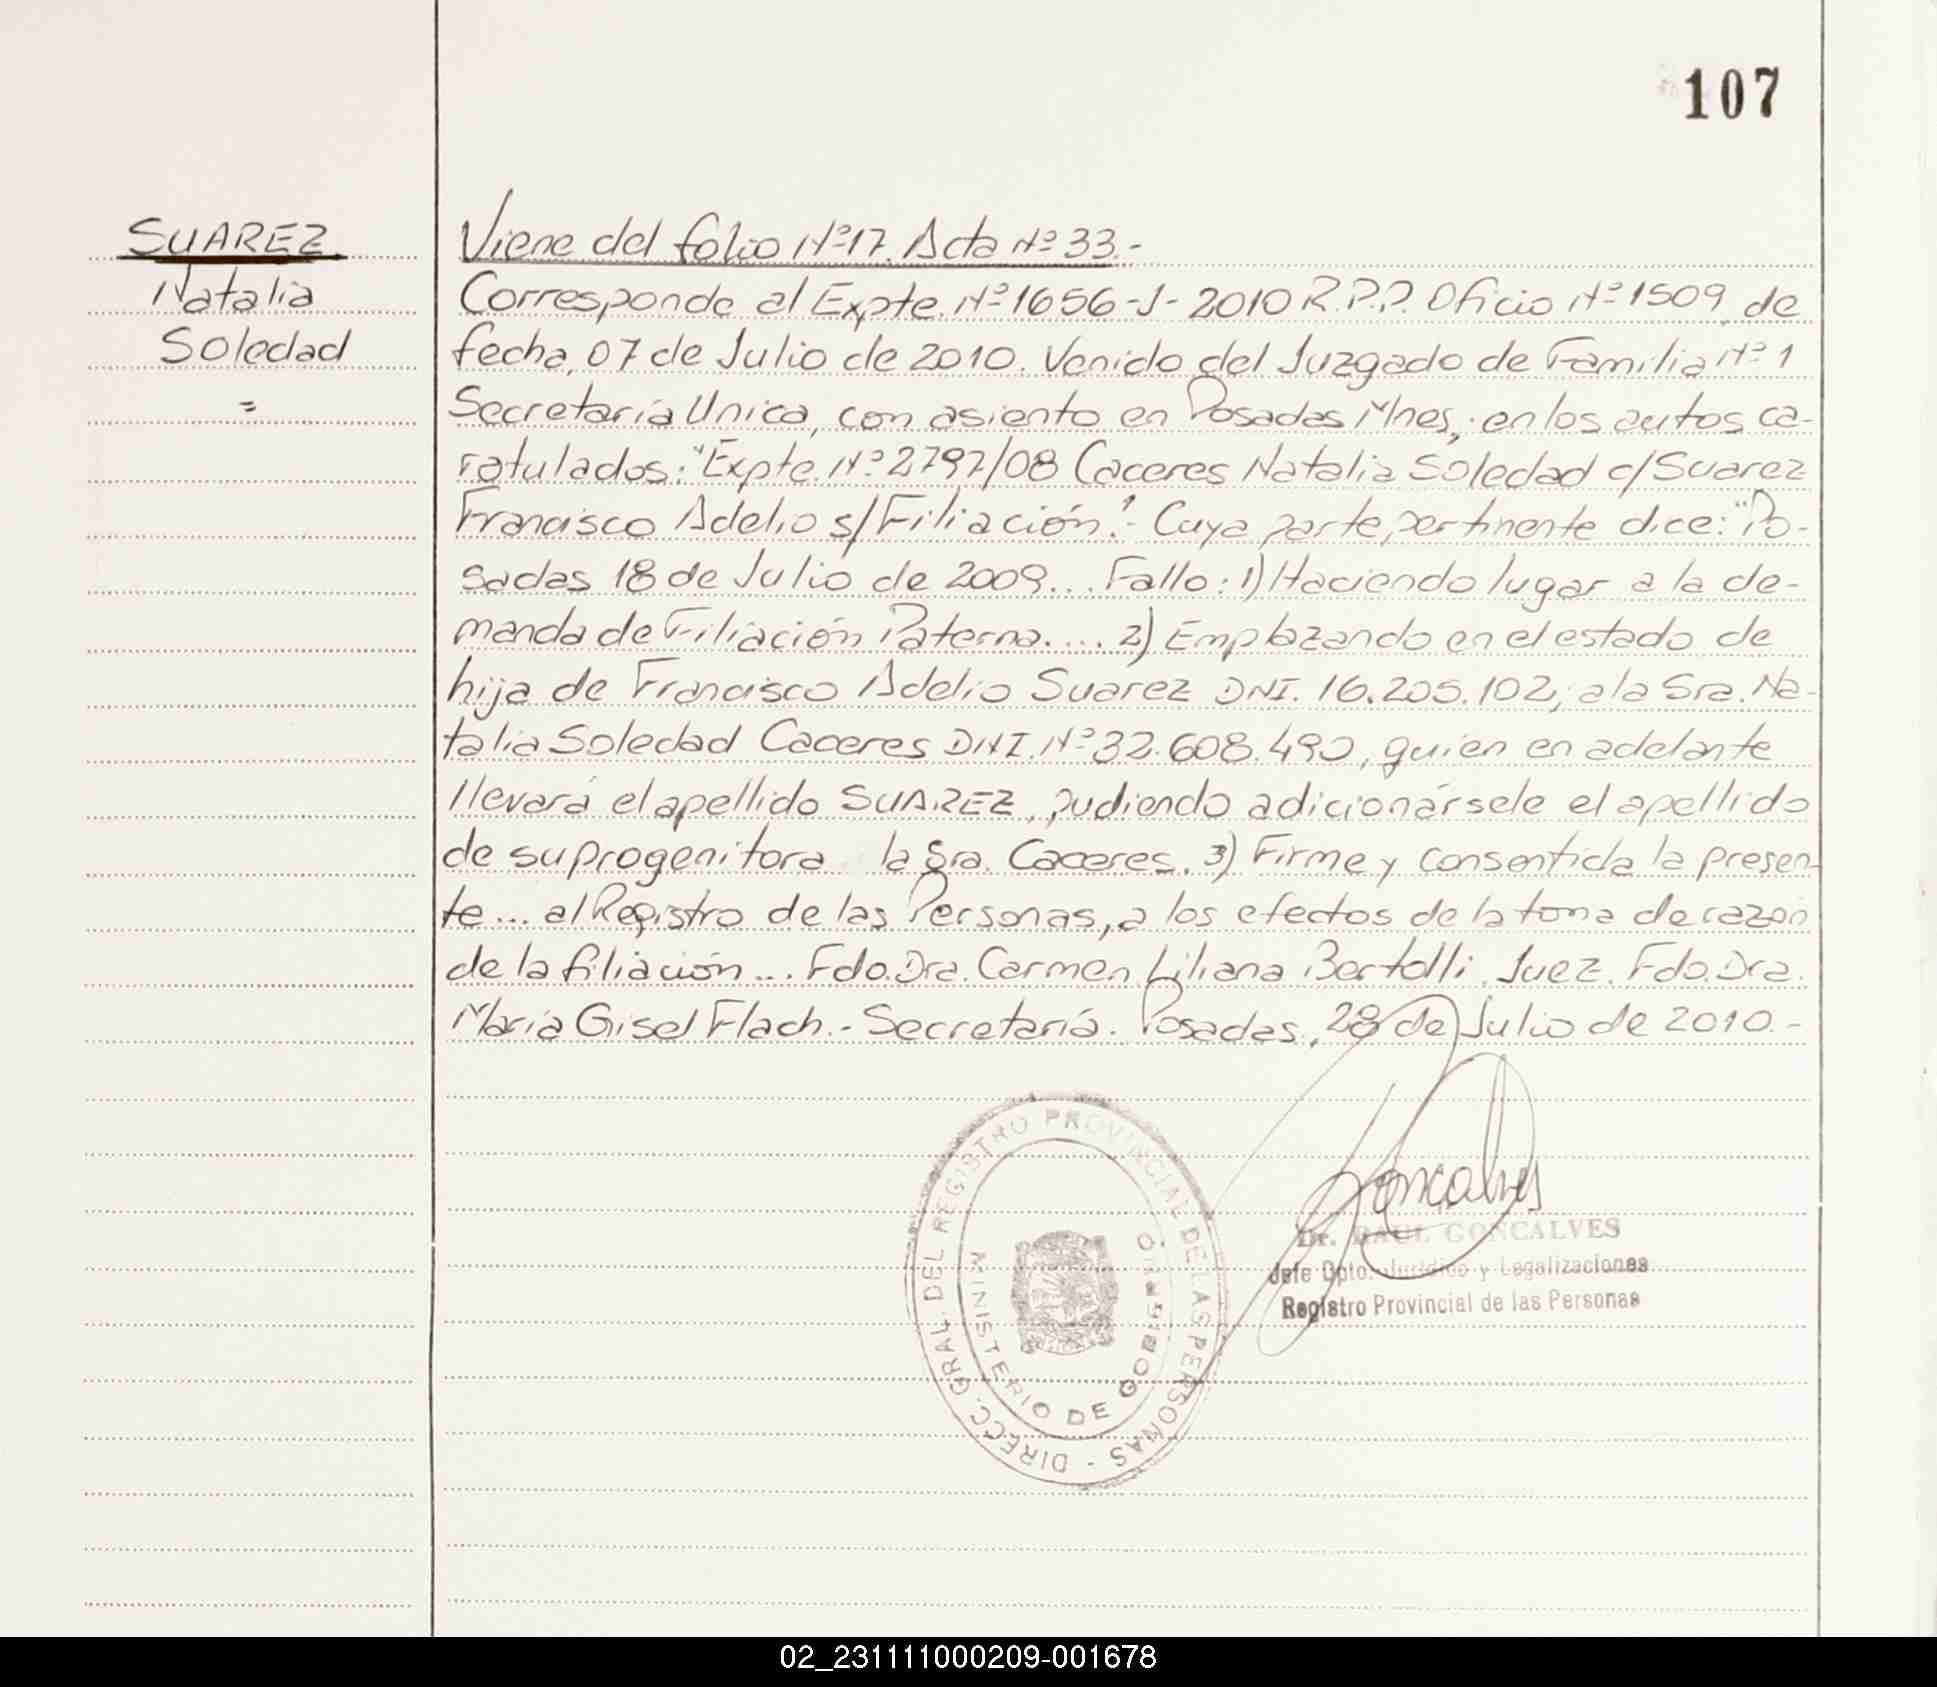 107
SUAREZ
Natalia
Soledad
=
Viene del folio Nº17. Acta Nº 33.-
Corresponde al Expte. Nº 1656-J-2010 R.P.P. Oficio Nº 1509, de
fecha, 07 de Julio de 2010. Venido del Juzgado de Familia Nº 1
Secretaría Unica, con asiento en Posadas Mnes, en los autos ca-
ratulados: "Expte. Nº 2797/08 Caceres Natalia Soledad c/Suarez
Francisco Adelio s/Filiación".- Cuya parte pertinente dice: "Po-
sadas 18 de Julio de 2009... Fallo: 1) Haciendo lugar a la de-
manda de Filiación Paterna.... 2) Emplazando en el estado de
hija de Francisco Adelio Suarez DNI. 16.205.102, a la Sra. Na-
talia Soledad Caceres DNI. Nº 32.608.490, quien en adelante
llevará el apellido SUAREZ, pudiendo adicionársele el apellido
de su progenitora la Sra. Caceres. 3) Firme y consentida la presen-
te... al Registro de las Personas, a los efectos de la toma de razón
de la filiación... Fdo. Dra. Carmen Liliana Bertolli. Juez. Fdo. Dra.
María Gisel Flach.- Secretaría. Posadas, 28 de Julio de 2010.-
DIRECC. GRAL. DEL REGISTRO PROVINCIAL DE LAS PERSONAS -
MINISTERIO DE GOBIERNO
Goncalves
Dr. RAUL GONCALVES
Jefe Dpto. Jurídico y Legalizaciones
Registro Provincial de las Personas
02_231111000209-001678